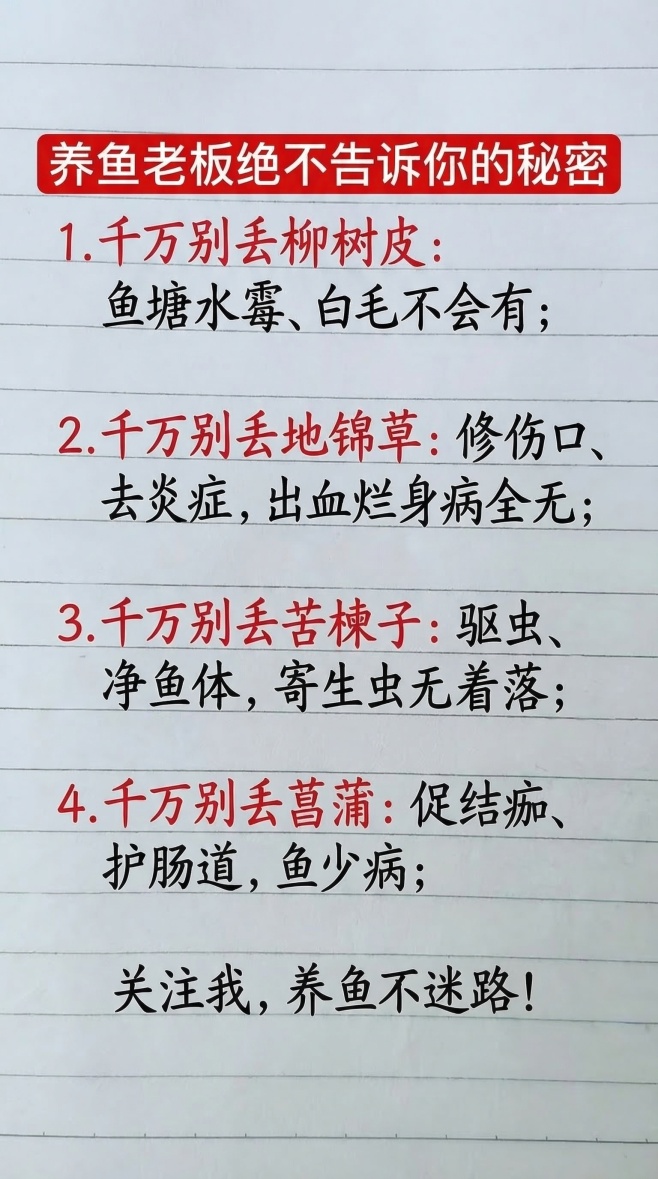 养鱼老板绝不告诉你的秘密
1.千万别丢柳树皮：
鱼塘水霉、白毛不会有；
2.千万别丢地锦草：修伤口、
去炎症，出血烂身病全无；
3.千万别丢苦楝子：驱虫、
净鱼体，寄生虫无着落；
4.千万别丢菖蒲：促结痂、
护肠道，鱼少病；
关注我，养鱼不迷路！